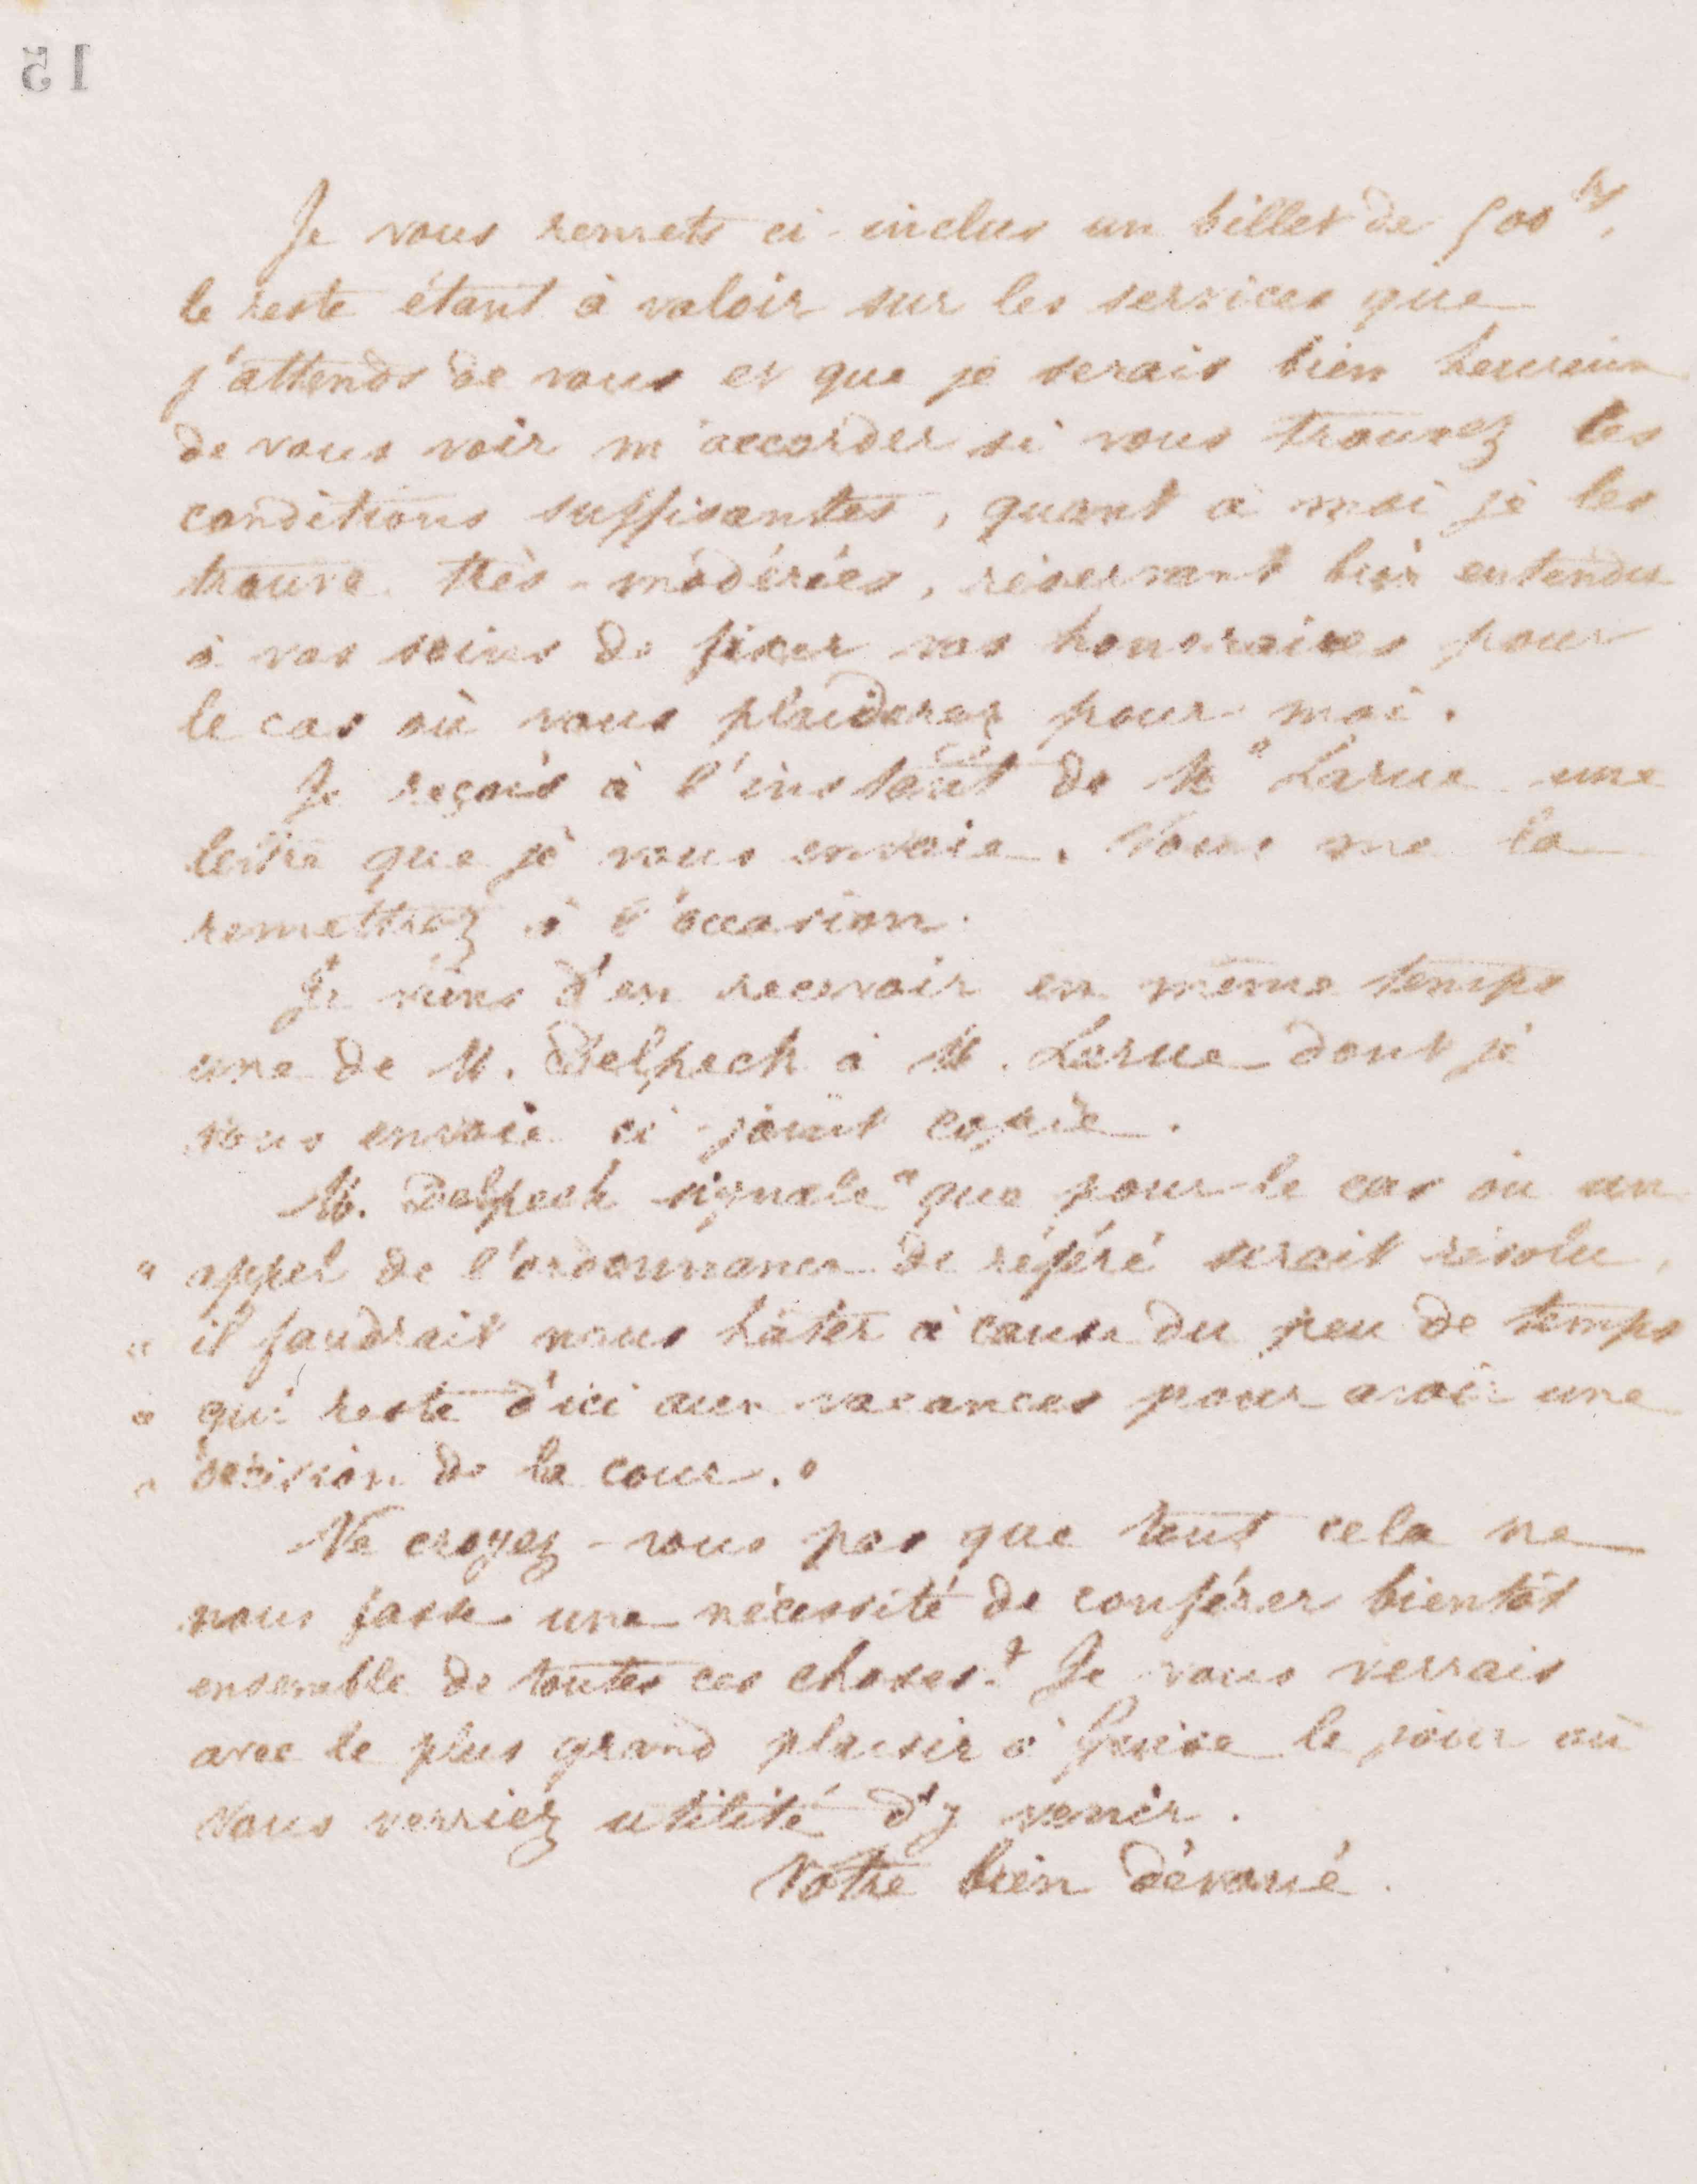 15
Je vous remets ci-inclus un billet de 500 frs,
le reste étant à valoir sur les services que
j'attends de vous et que je serais bien heureux
de vous voir m'accorder si vous trouvez les
conditions suffisantes, quant à moi je les
trouve très-modérées, réservant bien entendu
à vos soins de fixer vos honoraires pour
le cas où vous plaiderez pour moi.
Je reçois à l'instant de Me Larue une
lettre que je vous envoie. Vous me la
remettrez à l'occasion.
Je viens d'en recevoir en même temps
une de M. Delpech à M. Larue dont je
vous envoie ci-joint copie.
M. Delpech signale "que pour le cas où un
" appel de l'ordonnance de référé serait résolu,
" il faudrait nous hâter à cause du peu de temps
" qui reste d'ici aux vacances pour avoir une
" décision de la cour."
Ne croyez-vous pas que tout cela ne
nous fasse une nécessité de conférer bientôt
ensemble de toutes ces choses? Je vous verrais
avec le plus grand plaisir à Guise le jour où
vous verriez utilité d'y venir.
Votre bien dévoué.